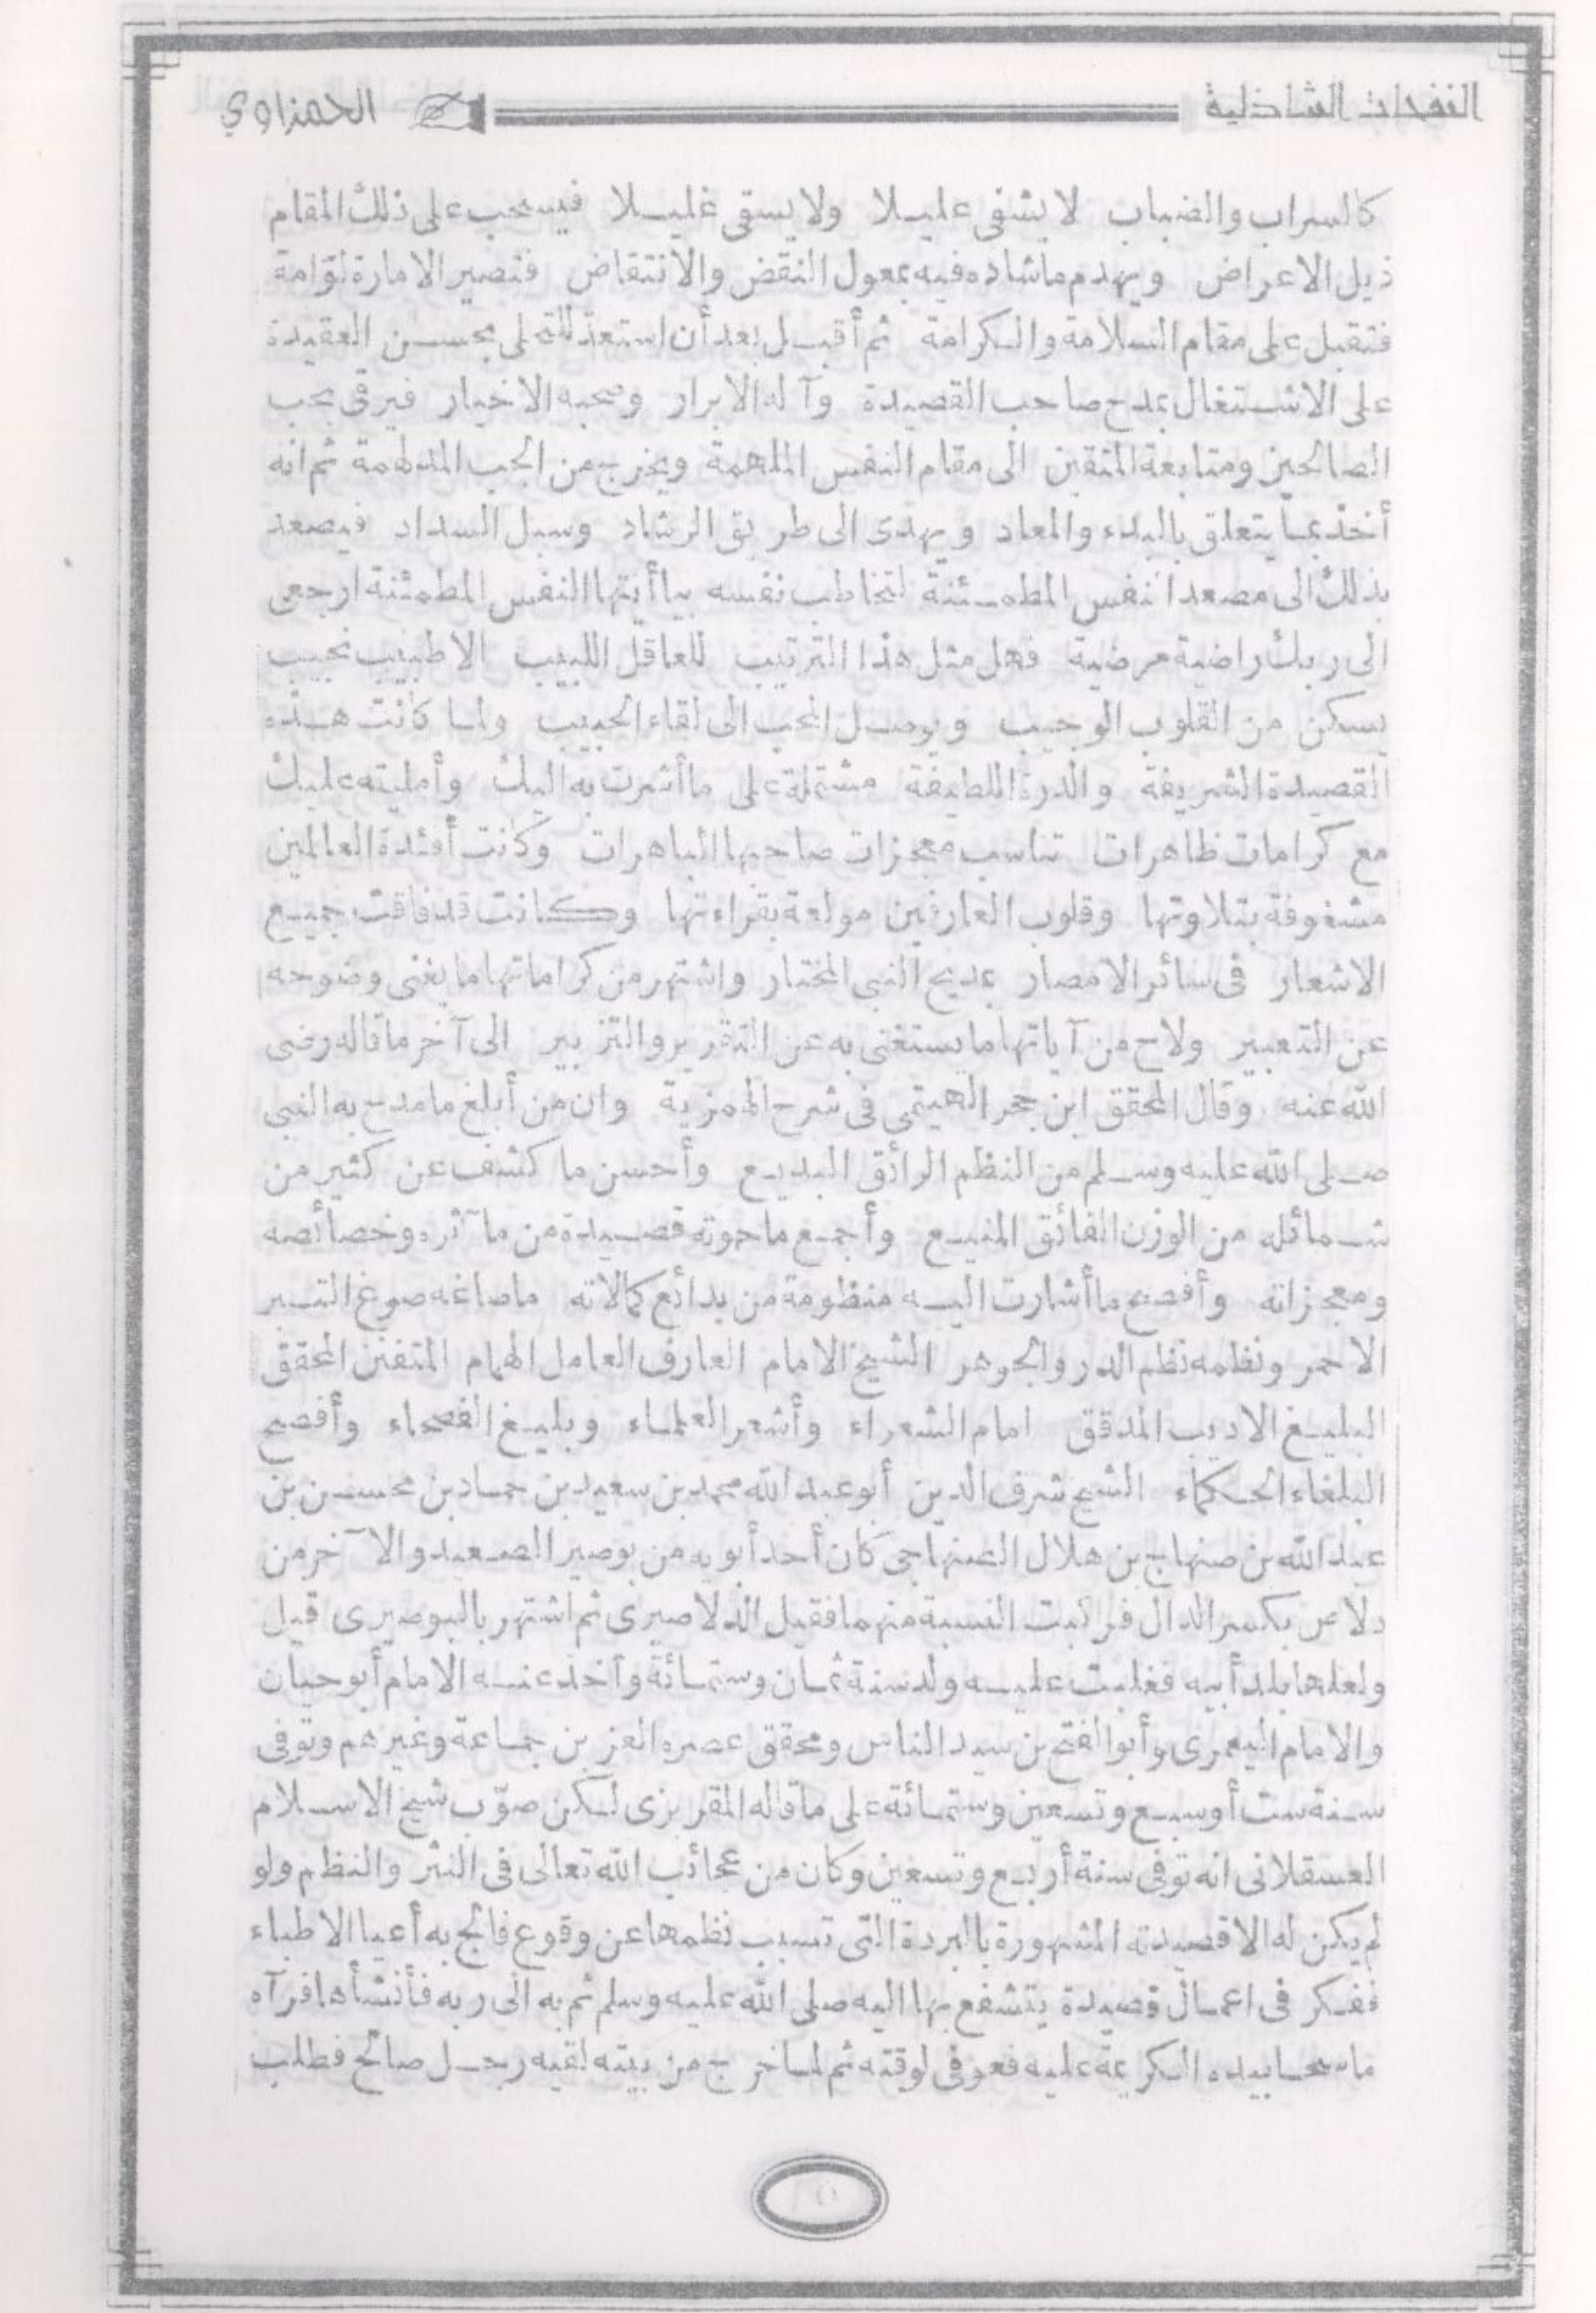 النفحات الشاذلية
الحمزاوي
كالسراب والضباب لا يشفى عليلا ولا يسقى غليلا فيسحب على ذلك المقام
ذيل الاعراض ويهدم ماشاده فيه بمعول النقض والانتقاض فتصير الامارة لوّامة
فتقبل على مقام السلامة والكرامة ثم أقبل بعد أن استعد للتحلى بحسن العقيدة
على الاشتغال بمدح صاحب القصيدة وآله الابرار وصحبه الاخيار فيرقى بحب
الصالحين ومتابعة المتقين الى مقام النفس الملهمة ويخرج من الحجب المدلهمة ثم انه
أخذ بما يتعلق بالبدء والمعاد ويهدى الى طريق الرشاد وسبل السداد فيصعد
بذلك الى مصعد النفس المطمئنة لتخاطب نفسه بياأيتها النفس المطمئنة ارجعى
الى ربك راضية مرضية فهل مثل هذا الترتيب للعاقل اللبيب الا طبيب نجيب
يسكن من القلوب الوجيب ويوصل المحب الى لقاء الحبيب ولما كانت هذه
القصيدة الشريفة والدرة اللطيفة مشتملة على ماأشرت به اليك وأمليته عليك
مع كرامات ظاهرات تناسب معجزات صاحبها الباهرات وكانت أفئدة العالمين
مشغوفة بتلاوتها وقلوب العارفين مولعة بقراءتها وكانت قد فاقت جميع
الاشعار فى سائر الامصار بمديح النبى المختار واشتهر من كراماتها ما يغنى وضوحه
عن التعبير ولاح من آياتها ما يستغنى به عن التقرير والتزبير الى آخر ماقاله رضى
الله عنه وقال المحقق ابن حجر الهيتمى فى شرح الهمزية وان من أبلغ ما مدح به النبى
صلى الله عليه وسلم من النظم الرائق البديع وأحسن ما كشف عن كثير من
شمائله من الوزن الفائق المنيع وأجمع ما حوته قصيدة من مآثره وخصائصه
ومعجزاته وأفصح ماأشارت اليه منظومة من بدائع كمالاته ماصاغه صوغ التبر
الاحمر ونظمه نظم الدر والجوهر الشيخ الامام العارف العامل الهمام المتفنن المحقق
البليغ الاديب المدقق امام الشعراء وأشعر العلماء وبليغ الفصحاء وأفصح
البلغاء الحكماء الشيخ شرف الدين أبو عبد الله محمد بن سعيد بن حماد بن محسن بن
عبد الله بن صنهاج بن هلال الصنهاجى كان أحد أبويه من بوصير الصعيد والآخر من
دلاص بكسر الدال فركبت النسبة منهما فقيل الدلاصيرى ثم اشتهر بالبوصيرى قيل
ولعلها بلد أبيه فغلبت عليه ولد سنة ثمان وستمائة وأخذ عنه الامام أبو حيان
والامام اليعمرى وأبو الفتح بن سيد الناس ومحقق عصره العز بن جماعة وغيرهم وتوفى
سنة ست أو سبع وتسعين وستمائة على ماقاله المقريزى لكن صوّب شيخ الاسلام
العسقلانى انه توفى سنة أربع وتسعين وكان من عجائب الله تعالى فى النثر والنظم ولو
لم يكن له الا قصيدته المشهورة بالبردة التى تسبب نظمها عن وقوع فالج به أعيا الاطباء
ففكر فى اعمال قصيدة يتشفع بها اليه صلى الله عليه وسلم ثم به الى ربه فأنشأها فرآه
ماسحا بيده الكريمة عليه فعوفى لوقته ثم لما خرج من بيته لقيه رجل صالح فطلب